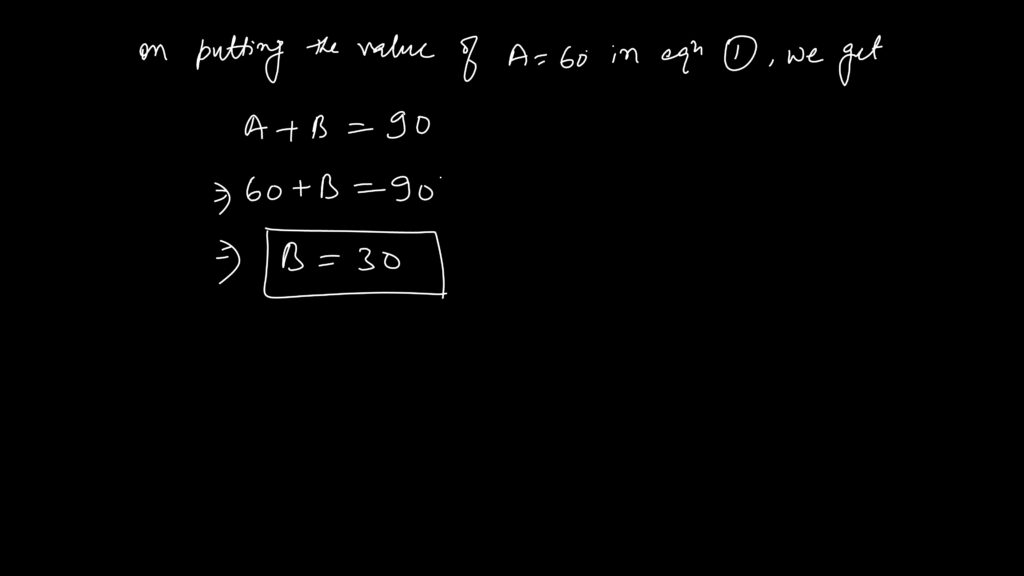 on putting the value of A = 60 in eqn ①, we get
A + B = 90
⇒ 60 + B = 90
⇒ B = 30